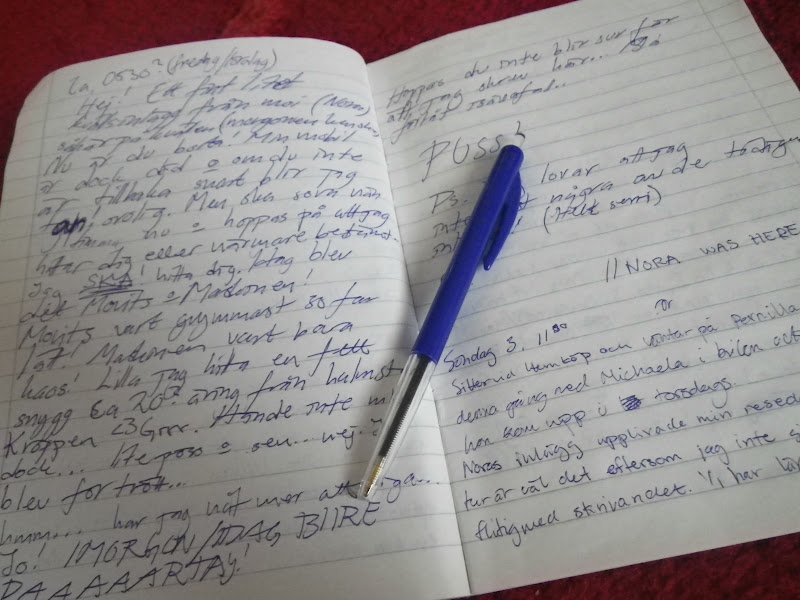 Ca. 0530? (fredag/lördag)
Hej! Ett fint litet
från mej (Nora)
Nu är du borta! Min mobil
är dock död o om du inte
är tillbaka snart blir jag
orolig. Men ska sova nån
timme nu o hoppas på att jag
hittar dig eller närmare bestämt..
Jag SKA! hitta dig. Idag blev
det Morits o Madonnen!
Morits vart grymmast so far
Madonnen vart bara
kaos! Lilla jag hitta en fett
snygg Ca 20? åring från halmst
Kroppen <3 Grrr. Hände inte m
dock... lite puss o sen... nej. J
blev för trött...
hmm... har jag nåt mer att
Jo! IMORGON/IDAG BLIRE
PAAAAARTAY!
Hoppas du inte blir sur för
att jag skrev här... Så
förlåt isåfall..
PUSS!
Ps. lovar att jag
inte några av de tidigare
(Helt sant)
// NORA WAS HERE
Söndag 5. 11:00
Sitter vid Hemköp och väntar på Pernilla
denna gång med Michaela i bilen och
hon kom upp i torsdags.
Noras inlägg upplivade min resed
tur är väl det eftersom jag inte
flitig med skrivandet. Vi har